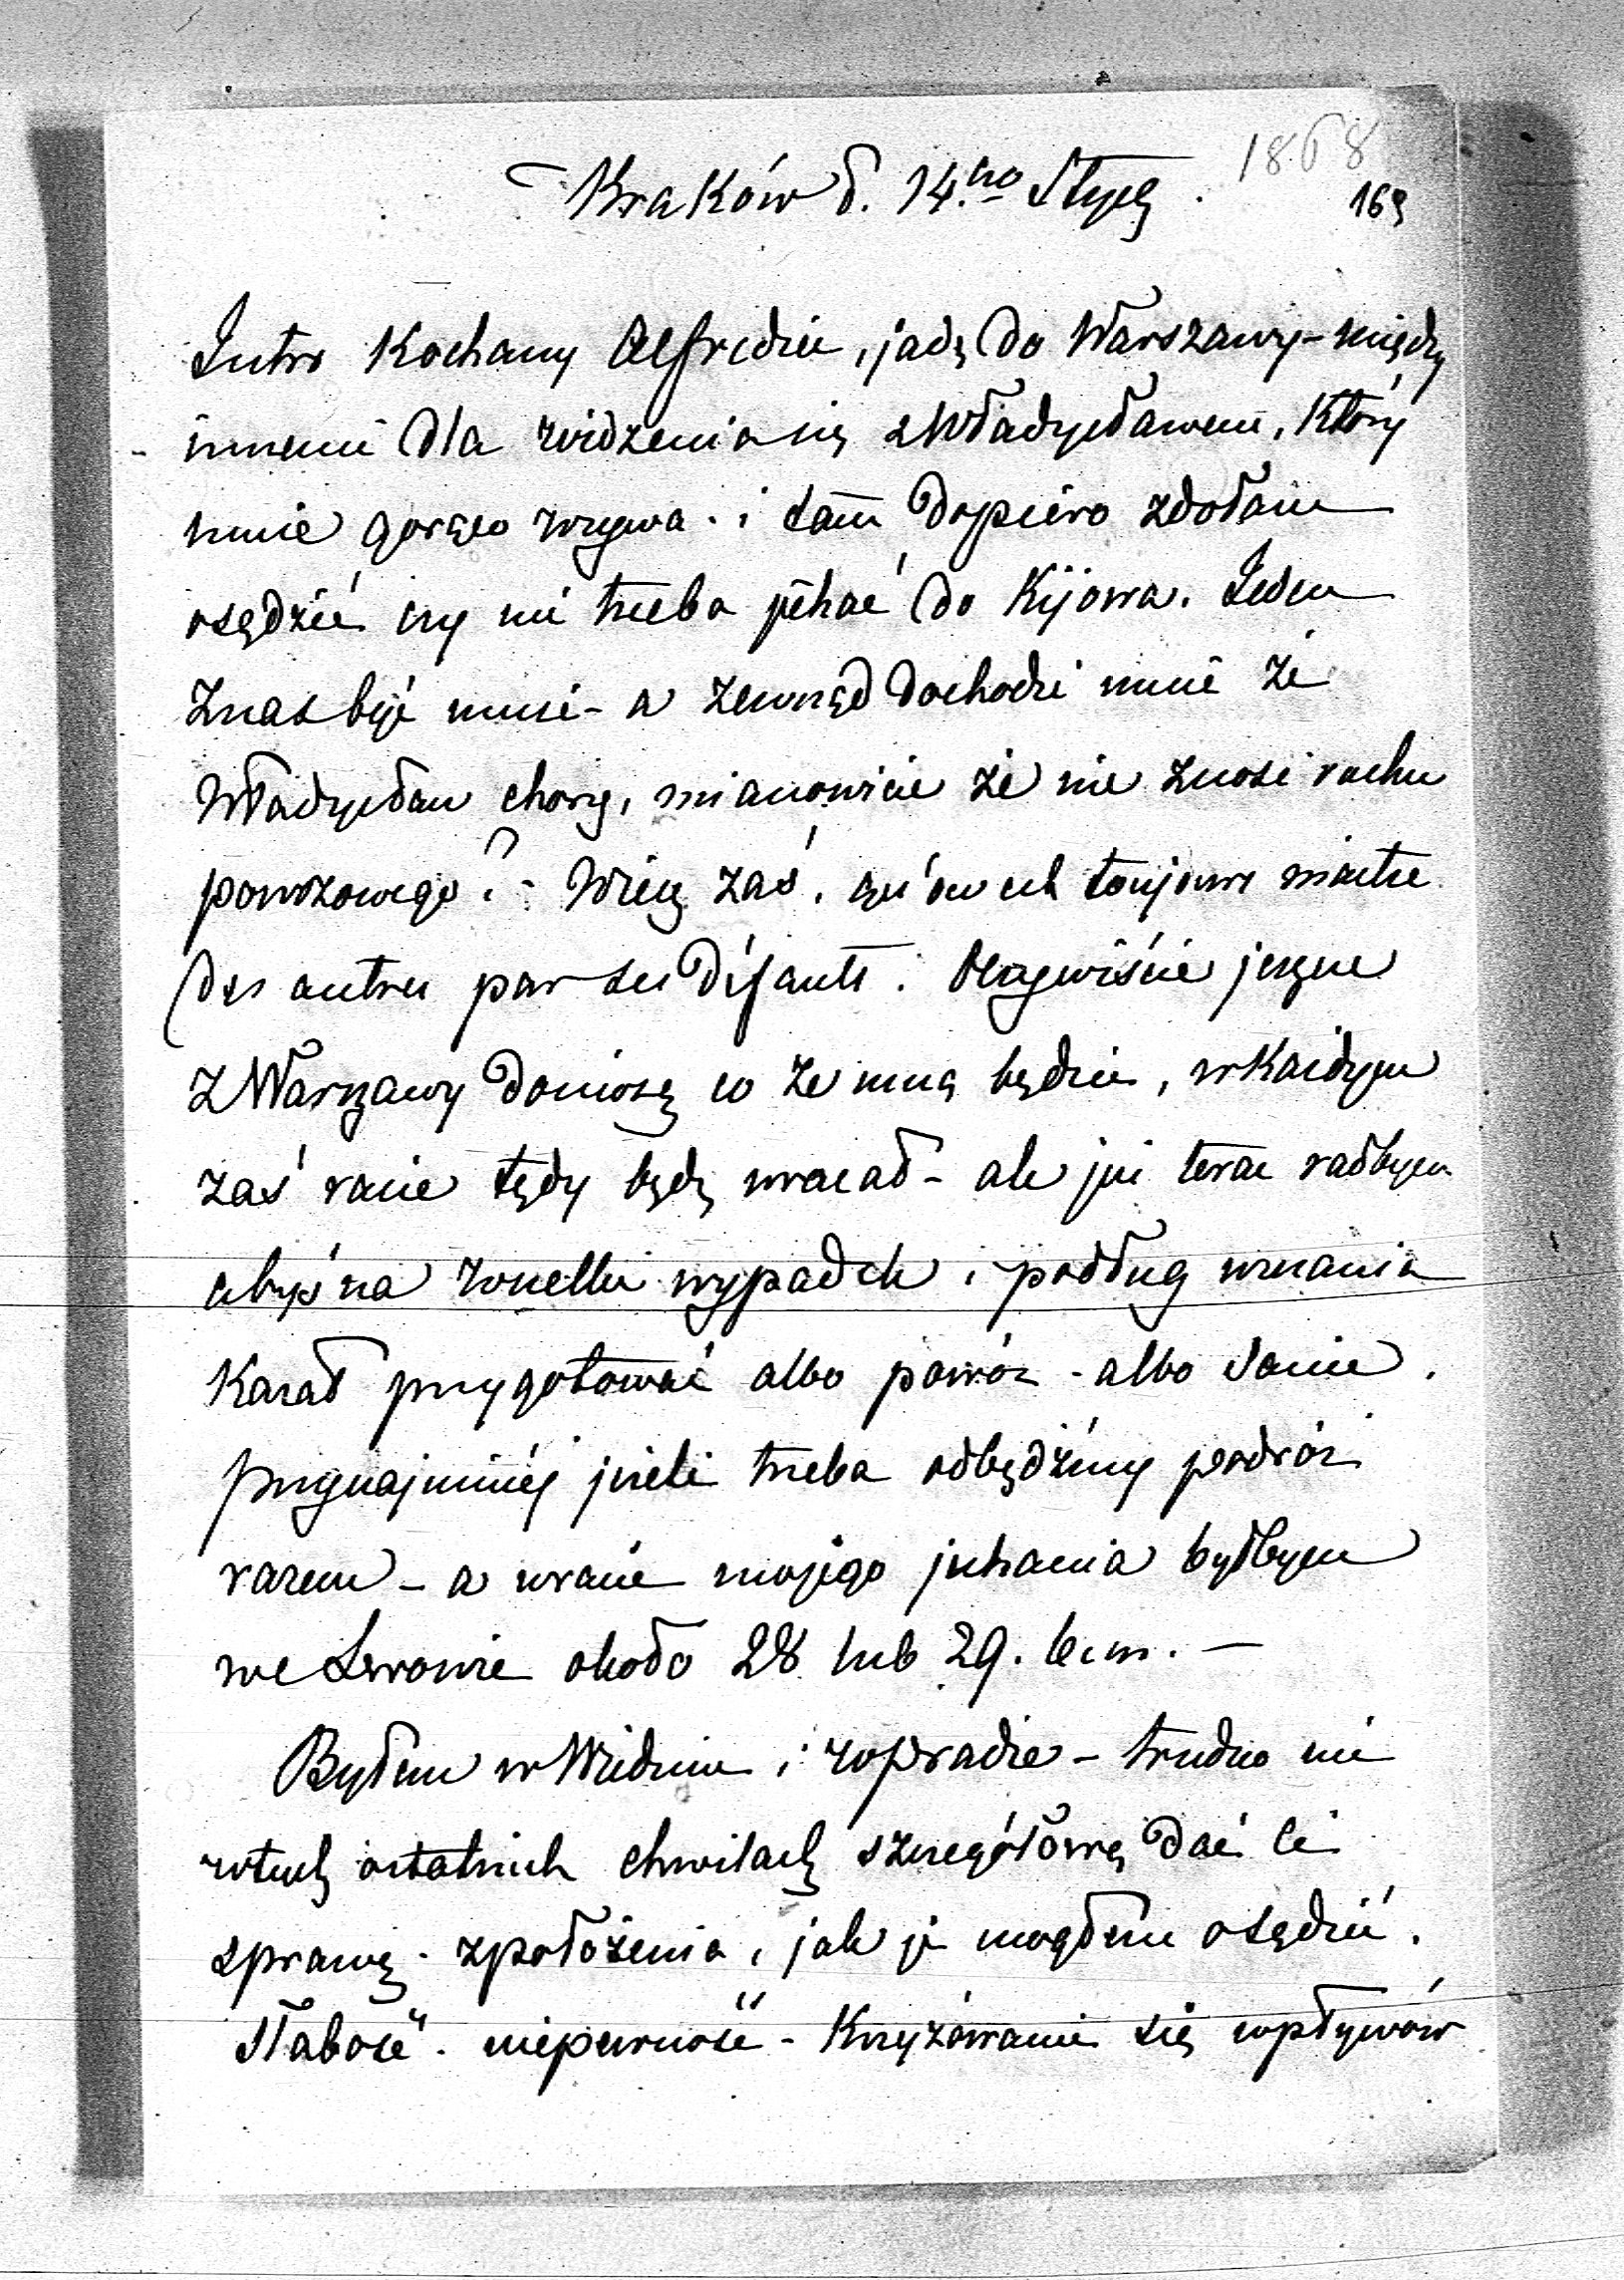 1868
Kraków d. 14.go Stycz.
169
Jutro Kochany Alfredzie, jadę do Warszawy – między
innemi dla widzenia się z Władysławem, który
mnie gorąco wzywa. i tam dopiero zdołam
osądzić czy mi trzeba jechać do Kijowa. Jeden
z nas być musi – a zewsząd dochodzi mnie że
Władysław chory, mianowicie że nie znosi ruchu
powozowego? – Wiesz zaś, qu'on est toujours maitre
des autres par ses défauts. Oczywiście jeszcze
z Warszawy doniosę co ze mną będzie, w każdym
zaś razie tędy będę wracał – ale już teraz radbym
abyś na wszelki wypadek i podług uznania
kazał przygotować albo powóz – albo sanie.
przynajmniéj jeżeli trzeba odbądźmy podróż
razem – a w razie mojego jechania byłbym
we Lwowie około 28 lub 29. b. m. –
Byłem w Wiedniu i w Pradze – trudno mi
w tych ostatnich chwilach szczegółową dać Ci
sprawę z położenia, jak je mogłem osądzić.
Słabość – niepewność – Krzyżowanie się wpływów